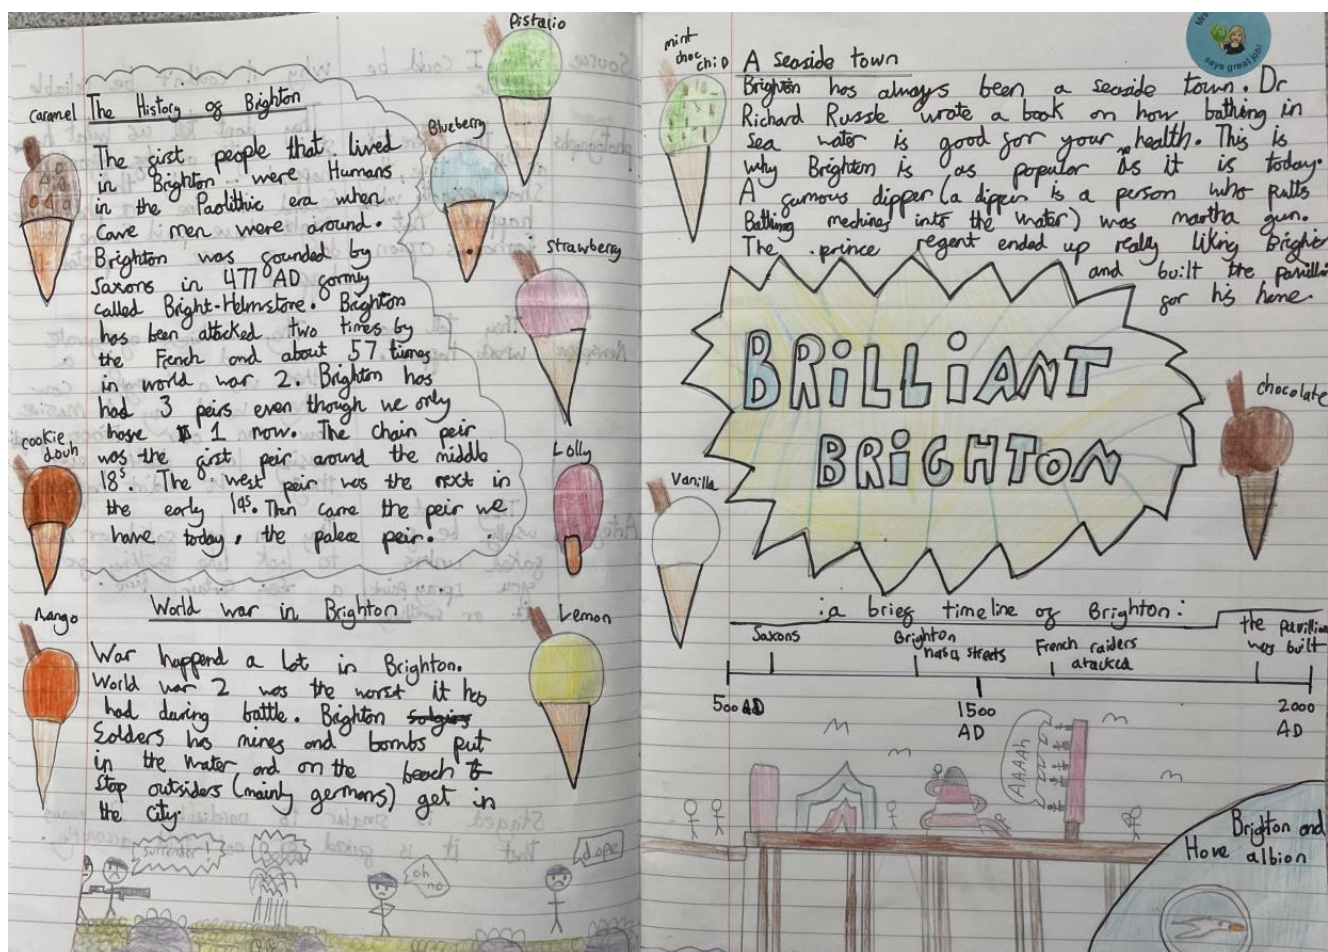 Pistatio
caramel
The History of Brighton
Blueberry
The first people that lived
in Brighton were Humans
in the Paolithic era when
cave men were around.
Strawberry
Brighton was founded by
Saxons in 477 AD formly
called Bright-Helmstore. Brighton
has been attacked two times by
the French and about 57 times
in world war 2. Brighton has
had 3 peirs even though we only
have 1 now. The chain peir
cookie
douh
was the first peir around the middle
Lolly
18s. The west peir was the next in
the early 19s. Then came the peir we
have today, the palace peir.
World war in Brighton
Mango
Lemon
War happend a lot in Brighton.
World war 2 was the worst it has
had during battle. Brighton
Solders has mines and bombs put
in the water and on the beach to
stop outsiders (mainly germons) get in
the city.
surrender!
oh
no
dope
mint
choc
chip
A seaside town
says great job!
Brighton has always been a seaside town. Dr
Richard Russle wrote a book on how bathing in
sea water is good for your health. This is
why Brighton is as popular as it is today.
A famous dipper (a dipper is a person who putts
Bathing mechines into the water) was martha gun.
The prince regent ended up really liking Brighton
and built the pavilli
for his home.
BRiLLiANT
BRiGHTON
chocolate
Vanilla
:a brief timeline of Brighton:
Saxons
Brighton
has 4 streets
French raiders
atacked
the pavillion
was built
500 AD
1500
AD
2000
AD
AAAAh
Brighton and
Hove albion